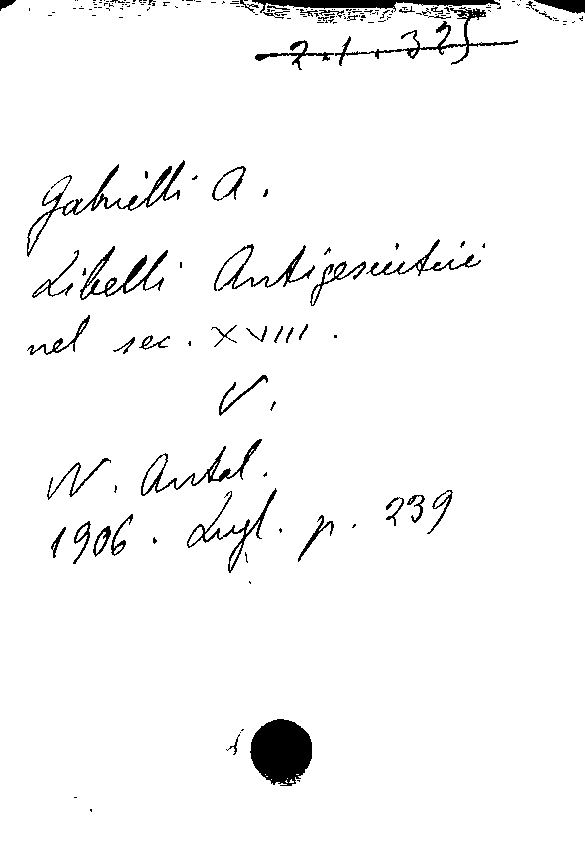 2.1.325
Gabrielli A.
Libelli Antigesuitici
nel sec. XVIII.
V.
N. Antol.
1906. Lugl. p. 239